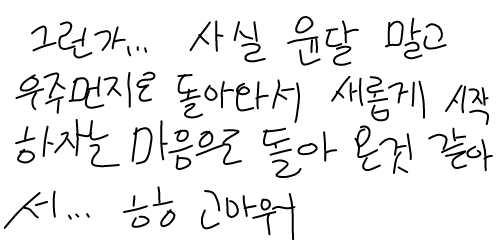 그런가... 사실 윤달 말고
우주먼지로 돌아와서 새롭게 시작
하자는 마음으로 돌아 온것 같아
서... ㅎㅎ 고마워